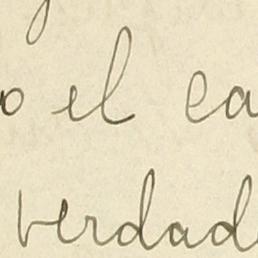 o el ca
verdad